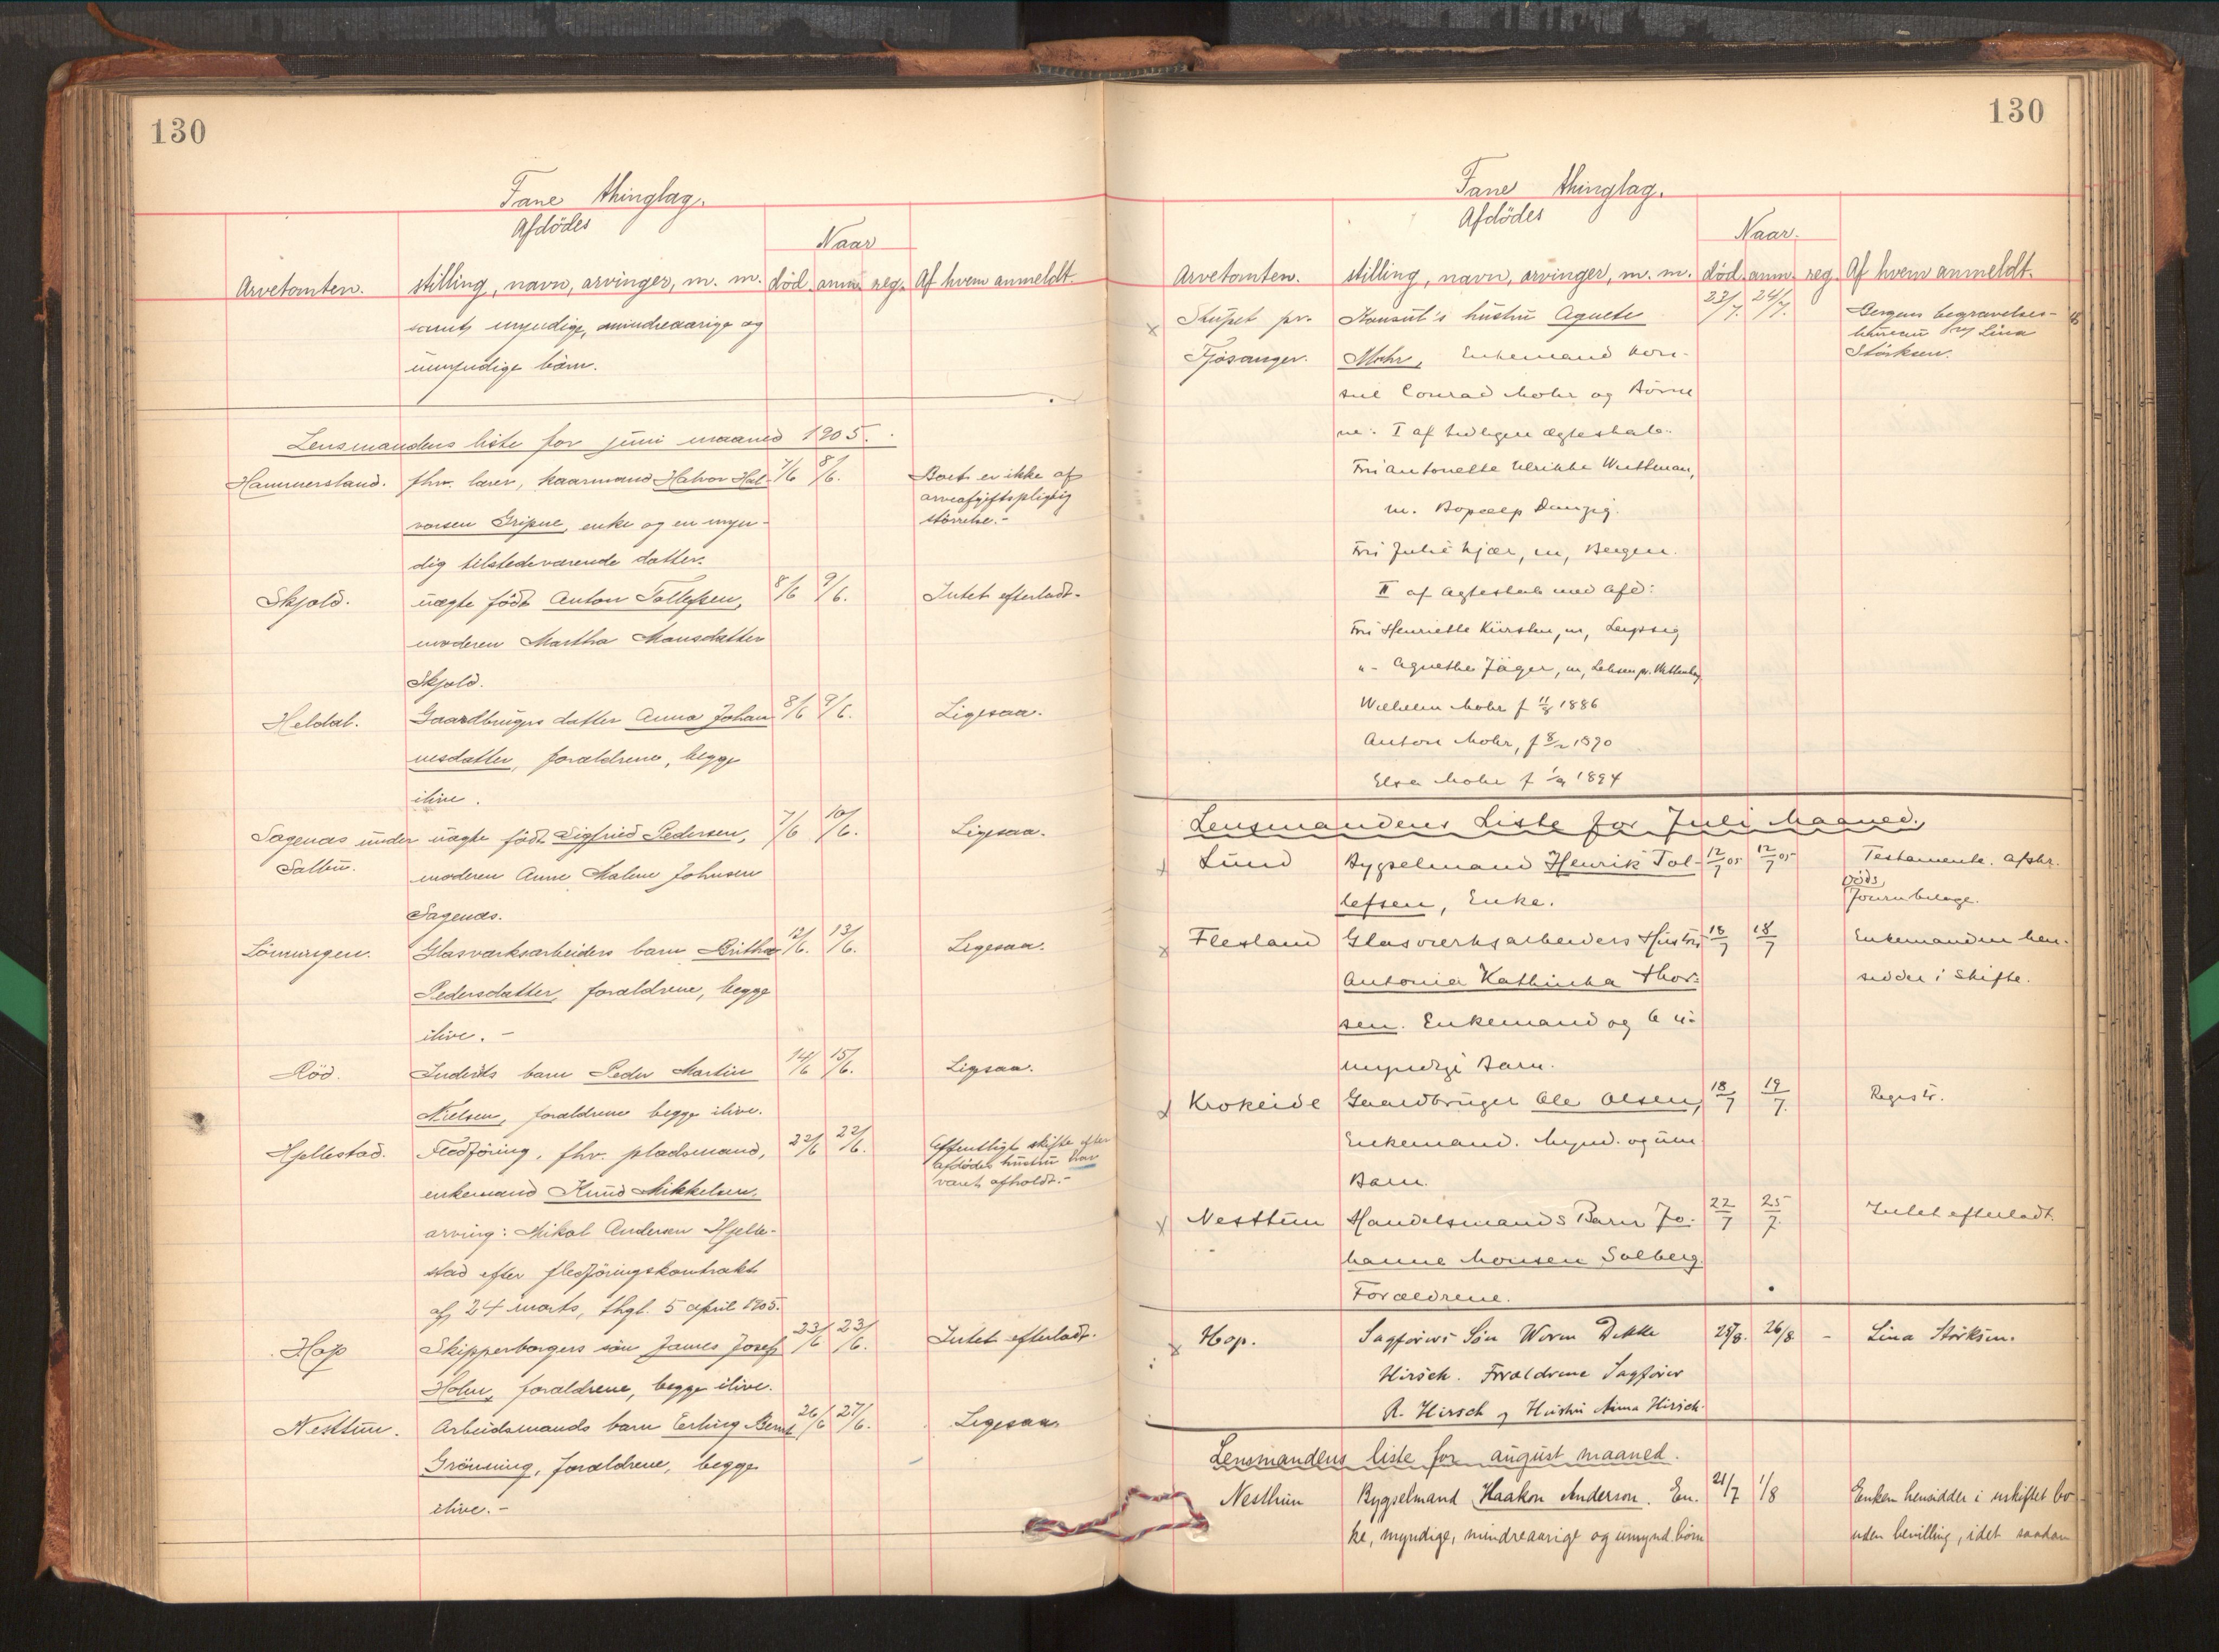 130
Fane thinglag.
Afdödes
Naar
Arvetomten. stilling, navn, arvinger, m. m. död. anm. reg. Af hvem anmeldt.
samt myndige, mindreaarige og
umyndige börn.
Lensmandens liste for juni maaned 1905.
Hammersland. fhv. lærer, kaarmand Halvor Hal- 7/6 8/6. Boet er ikke af
arveafgiftspligtig
vorsen Gripne, enke og en myn- störrelse.-
dig tilstedeværende datter.
Skjold. uægte födt Anton Tollefsen, 8/6 9/6. Intet efterladt.
moderen Martha Monsdatter
Skjold.
Heldal. Gaardbrugers datter Anna Johan- 8/6 9/6. Ligesaa.
nesdatter, forældrene, begge
ilive.
Sagenæs under uægte födt Sigfried Pedersen, 7/6 10/6. Ligesaa.
Saltbu. moderen Anne Malene Johnsen
Sagenæs.
Lönningen. Glasværksarbeiders barn Britha 12/6. 13/6. Ligesaa.
Pedersdatter, forældrene, begge
ilive.-
Röd. Indersts barn Peder Martin 14/6 15/6. Ligesaa.
Nielsen, forældrene begge ilive.
Hjellestad. Fledföring, fhv. pladsmand, 22/6 22/6. Offentligt skifte efter
afdödes hustru har
enkemand Knud Mikkelsen, været afholdt.-
arving: Nikol Andersen Hjelle-
stad efter fledföringskontrakt
af 24 marts, thgl. 5 april 1905.
Hop Skipperborgers sön James Josef 23/6 23/6. Intet efterladt.
Holm, forældrene, begge ilive.
Nesttun. Arbeidsmands barn Erling Bernt 26/6 27/6. Ligesaa
Grönning, forældrene, begge
ilive.-
130
Fane thinglag.
Afdödes
Naar.
Arvetomten. stilling, navn, arvinger, m. m. död. anm. reg. Af hvem anmeldt.
Stupet pr. Konsul's hustru Agnete 23/7. 24/7. Bergens begravelses-
bureau v/ Lina
Fjösanger. Mohr, Enkemand kon- Störksen.
sul Conrad Mohr og Börne
ne: I af tidligere ægteskab:
Fru Antonette Ulrikke Wuttman,
m. Bopæl Danzig.
Fru Julie Kjær, m, Bergen.
II af Ægteskab med Afd:
Fru Henriette Kürsten, m, Leipzig
"- Agnethe Jäger, m,
Wilhelm Mohr f 11/8 1886
Anton Mohr, f 1890
Elsa Mohr f 1/9 1894
Lensmandens Liste for Juli Maaned.
Lund Bygselmand Henrik Tol- 12/7 05 12/7 05 Testamente. Afskr.
Döds
lefsen, Enke. Journbilage.
Flesland Glasværksarbeiders Hustru 18/7 18/7 Enkemanden hen-
Antonia Kathinka Thor- sidder i Skifte.
sen. Enkemand og 6 u-
myndige Barn.
Krokeide Gaardbruger Ole Olsen, 18/7 19/7. Registr.
Enkemand. Mynd. og um
Barn.
Nesttun Handelsmands Barn Jo- 22/7 25/7. Intet efterladt.
hanne Monsen Solberg.
Forældrene.
Hop. Sagförers Sön Worm Dekke 25/8. 26/8 - Lina Störksen.
Hirsch. Forældrene Sagförer
R. Hirsch og Hustru Anna Hirsch.
Lensmandens liste for august maaned.
Nesttun Bygselmand Haakon Anderson. En- 21/7 1/8 Enken hensidder i uskiftet bo
ke, myndige, mindreaarige og umynd. börn uden bevilling, idet saadan